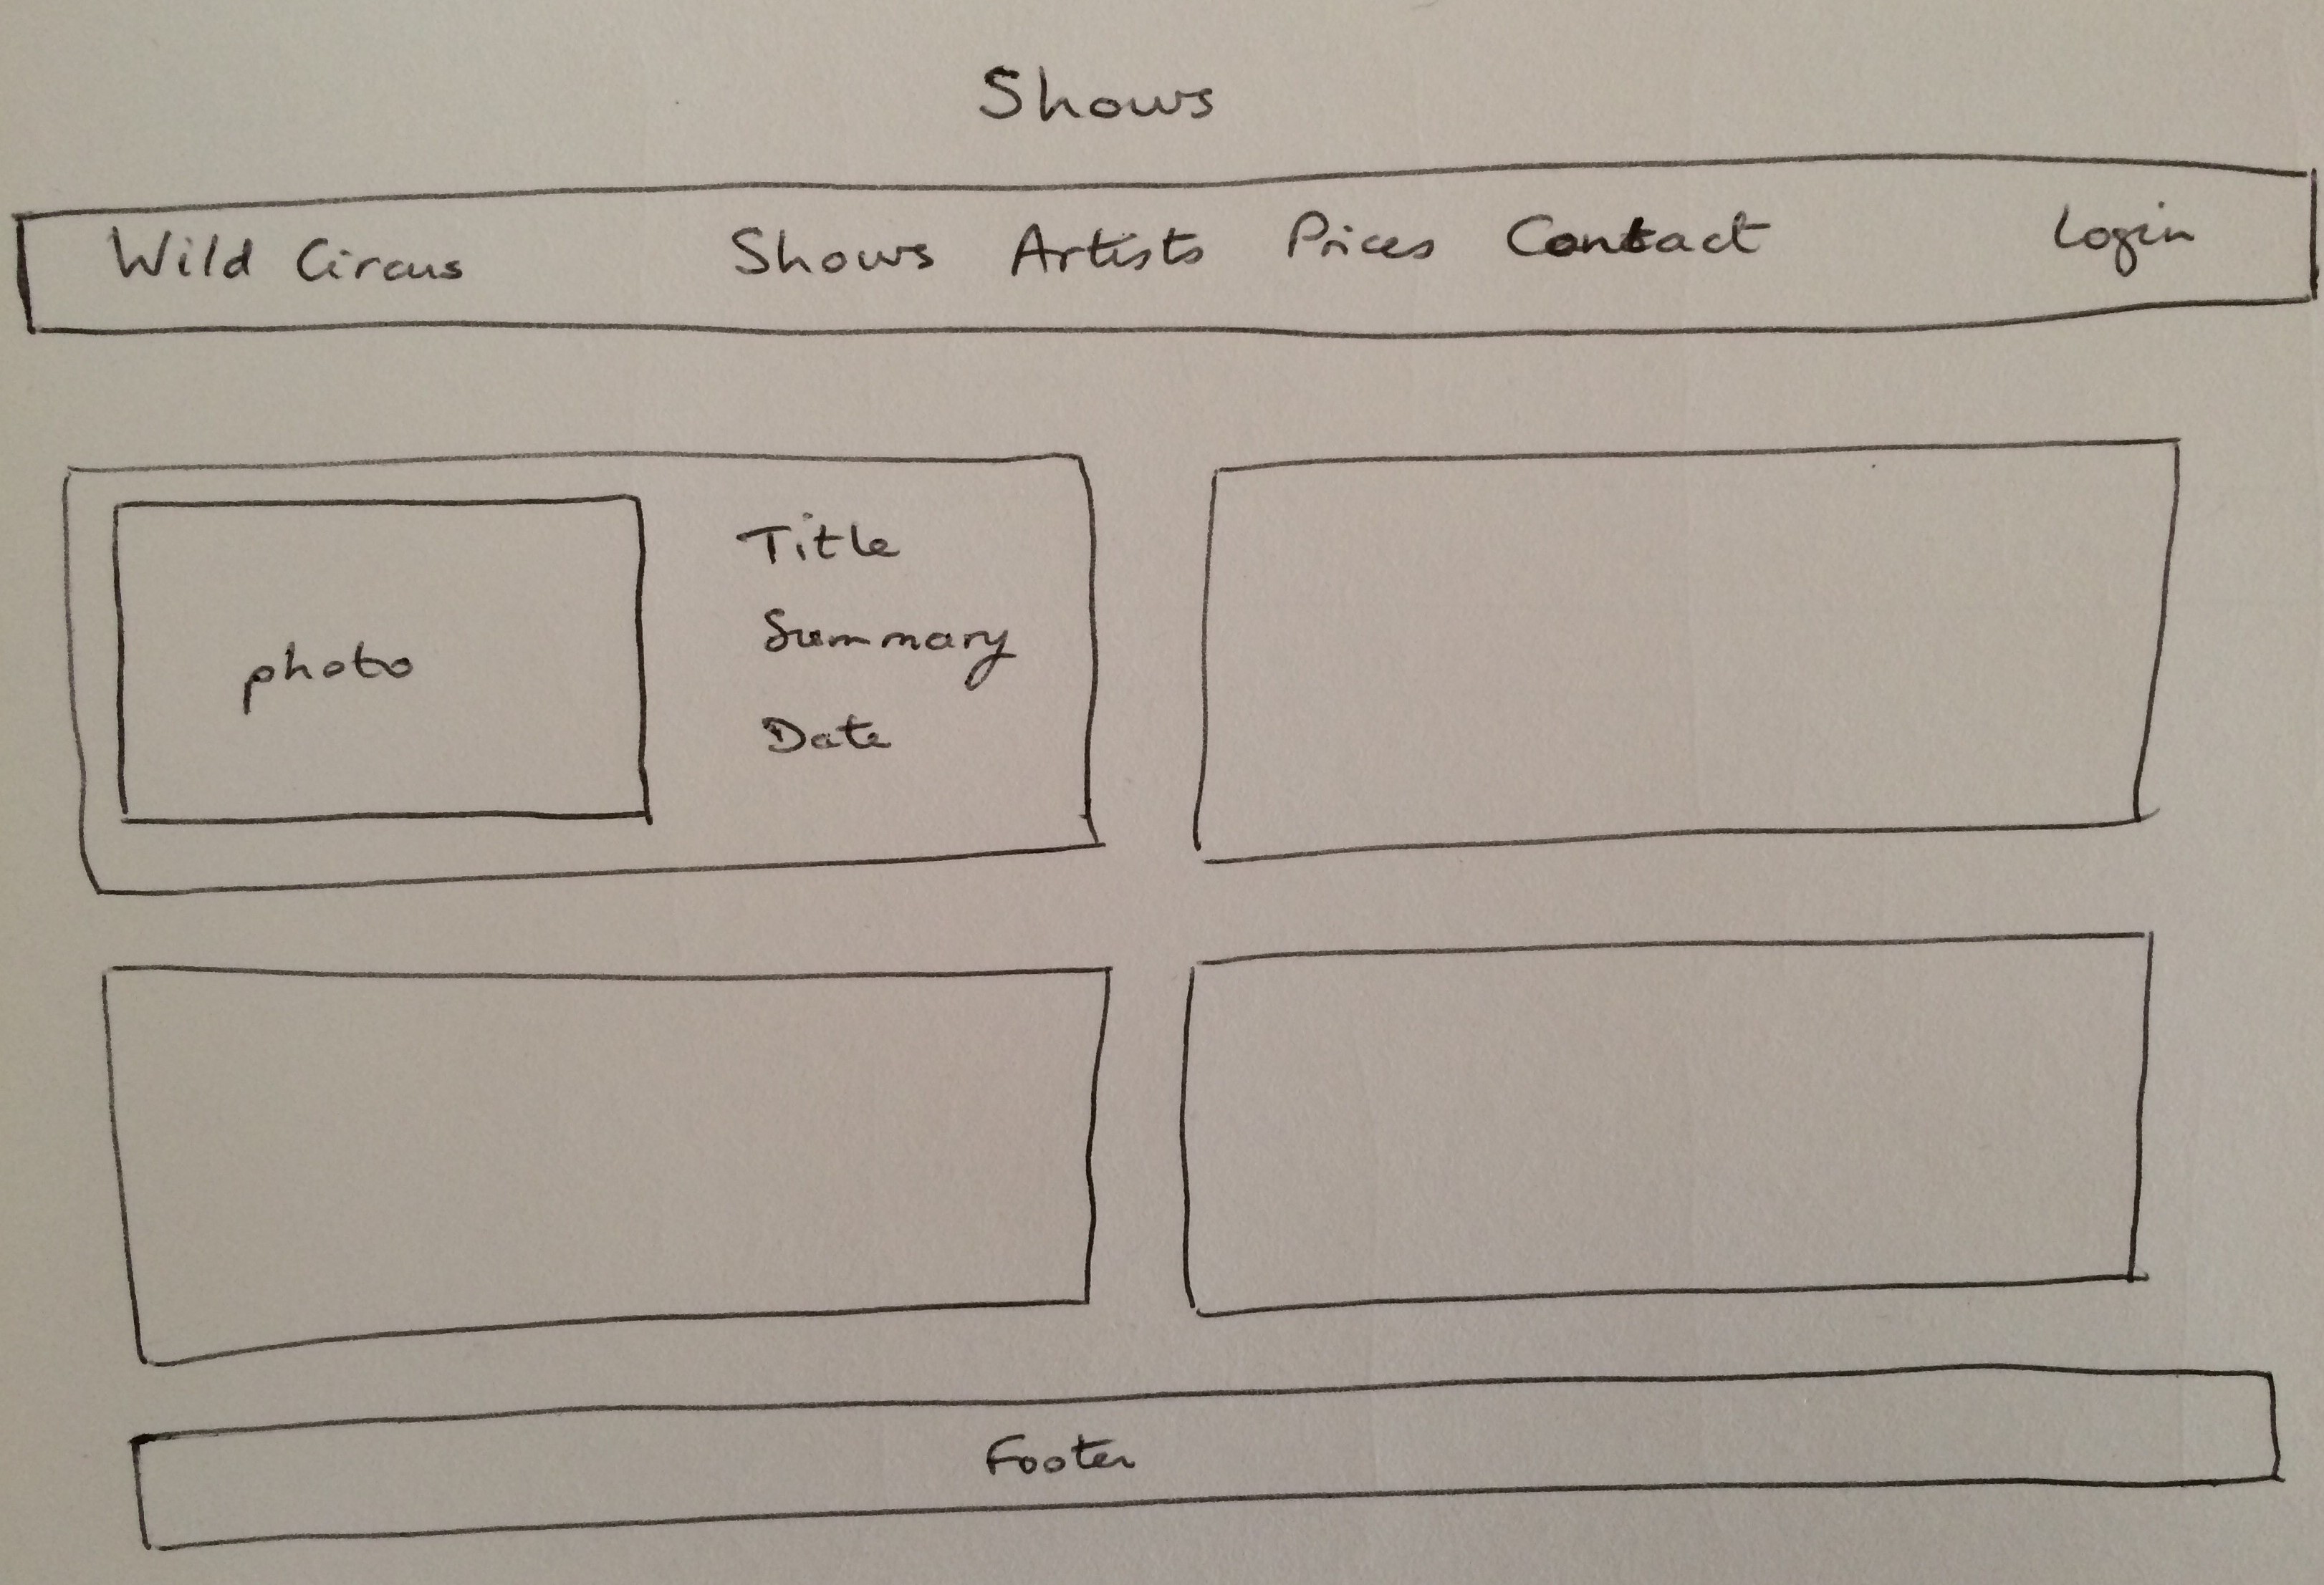 Shows
Wild Circus Shows Artists Prices Contact Login
photo
Title
Summary
Date
Footer